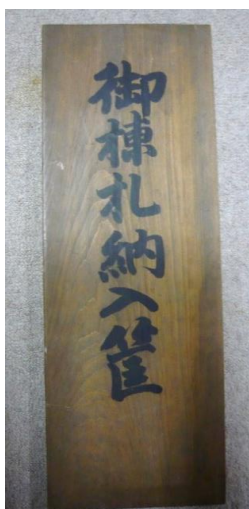 御棟札納入筐